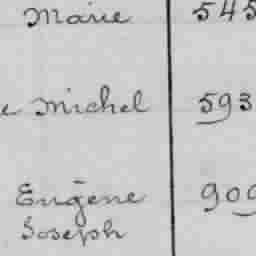 Marie 545
e Michel 593
Eugène 909
Joseph